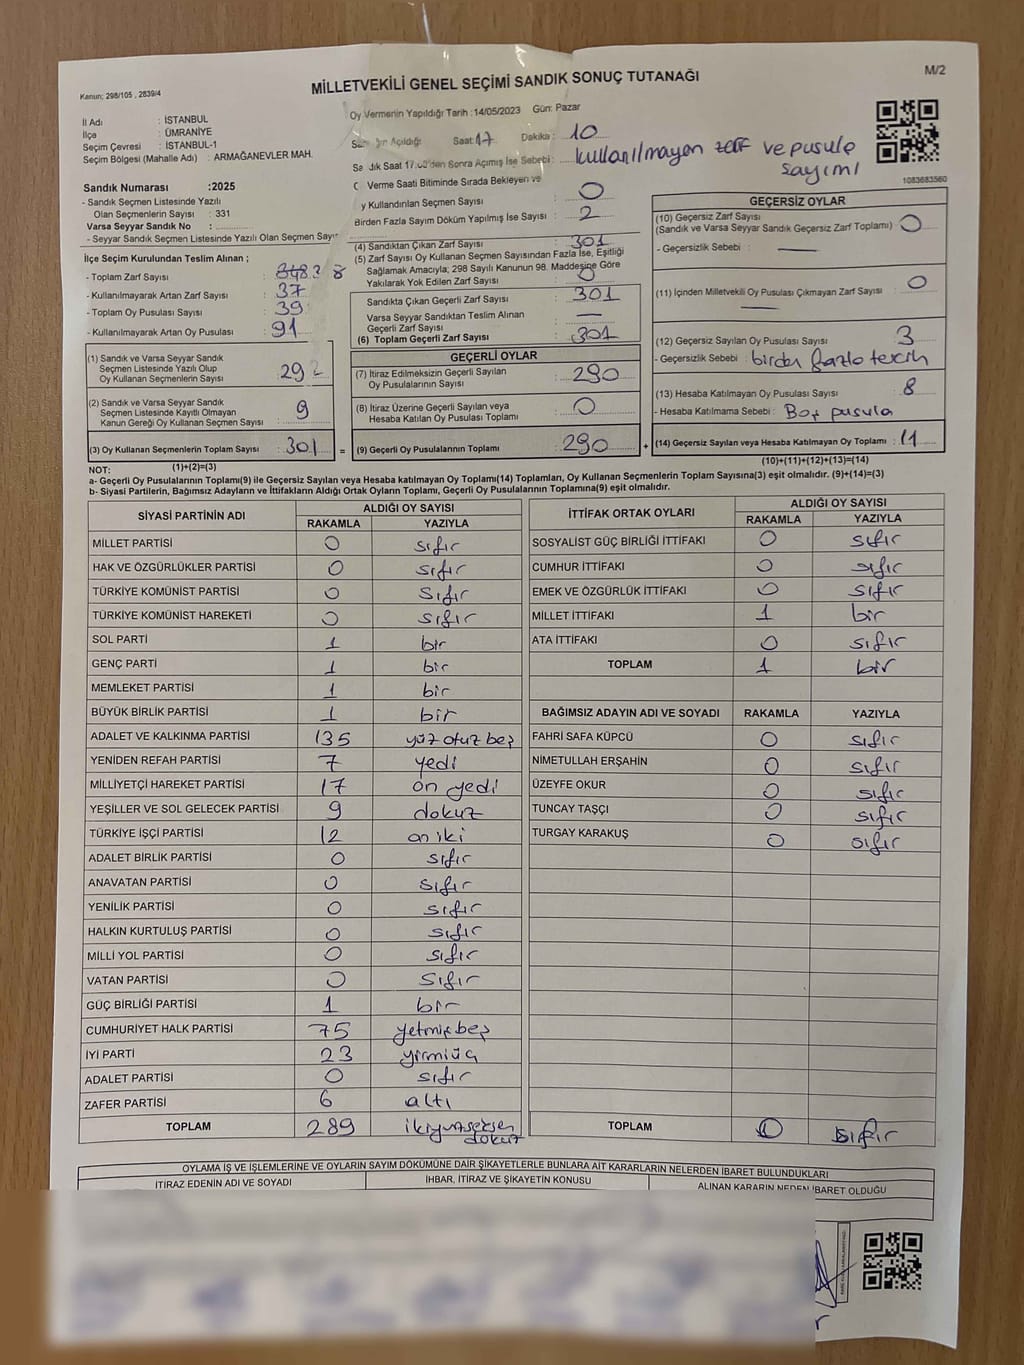 MİLLETVEKİLİ GENEL SEÇİMİ SANDIK SONUÇ TUTANAĞI
M/2
Kanun: 298/105 , 2839/4
İl Adı : İSTANBUL
İlçe : ÜMRANİYE
Seçim Çevresi : İSTANBUL-1
Seçim Bölgesi (Mahalle Adı) : ARMAĞANEVLER MAH.
Oy Vermenin Yapıldığı Tarih :14/05/2023 Gün: Pazar
Açıldığı Saat: 17 Dakika : 10
Saat 17.00'den Sonra Açımış İse Sebebi : kullanılmayan ve pusula
sayımı
1083683560
Sandık Numarası :2025
- Sandık Seçmen Listesinde Yazılı
Olan Seçmenlerin Sayısı : 331
Varsa Seyyar Sandık No :
- Seyyar Sandık Seçmen Listesinde Yazılı Olan Seçmen
İlçe Seçim Kurulundan Teslim Alınan ;
- Toplam Zarf Sayısı :
- Kullanılmayarak Artan Zarf Sayısı : 37
- Toplam Oy Pusulası Sayısı : 39
- Kullanılmayarak Artan Oy Pusulası : 91
(1) Sandık ve Varsa Seyyar Sandık
Seçmen Listesinde Yazılı Olup
Oy Kullanan Seçmenlerin Sayısı : 292
(2) Sandık ve Varsa Seyyar Sandık
Seçmen Listesinde Kayıtlı Olmayan
Kanun Gereği Oy Kullanan Seçmen Sayısı : 9
(3) Oy Kullanan Seçmenlerin Toplam Sayısı : 301 =
Verme Saati Bitiminde Sırada Bekleyen ve
y Kullandırılan Seçmen Sayısı : 0
Birden Fazla Sayım Döküm Yapılmış İse Sayısı : 2
(4) Sandıktan Çıkan Zarf Sayısı : 301
(5) Zarf Sayısı Oy Kullanan Seçmen Sayısından Fazla İse, Eşitliği
Sağlamak Amacıyla; 298 Sayılı Kanunun 98. Maddesine Göre
Yakılarak Yok Edilen Zarf Sayısı : 0
Sandıkta Çıkan Geçerli Zarf Sayısı : 301
Varsa Seyyar Sandıktan Teslim Alınan
Geçerli Zarf Sayısı : —
(6) Toplam Geçerli Zarf Sayısı : 301
GEÇERLİ OYLAR
(7) İtiraz Edilmeksizin Geçerli Sayılan
Oy Pusulalarının Sayısı : 290
(8) İtiraz Üzerine Geçerli Sayılan veya
Hesaba Katılan Oy Pusulası Toplamı : 0
(9) Geçerli Oy Pusulalarının Toplamı : 290 +
GEÇERSİZ OYLAR
(10) Geçersiz Zarf Sayısı
(Sandık ve Varsa Seyyar Sandık Geçersiz Zarf Toplamı) : 0
- Geçersizlik Sebebi : —
(11) İçinden Milletvekili Oy Pusulası Çıkmayan Zarf Sayısı : 0
—
(12) Geçersiz Sayılan Oy Pusulası Sayısı : 3
- Geçersizlik Sebebi : birden fazla tercih
(13) Hesaba Katılmayan Oy Pusulası Sayısı : 8
- Hesaba Katılmama Sebebi : Boş pusula
(14) Geçersiz Sayılan veya Hesaba Katılmayan Oy Toplamı : 11
NOT: (1)+(2)=(3)
(10)+(11)+(12)+(13)=(14)
a- Geçerli Oy Pusulalarının Toplamı(9) ile Geçersiz Sayılan veya Hesaba katılmayan Oy Toplamı(14) Toplamları, Oy Kullanan Seçmenlerin Toplam Sayısına(3) eşit olmalıdır. (9)+(14)=(3)
b- Siyasi Partilerin, Bağımsız Adayların ve İttifakların Aldığı Ortak Oyların Toplamı, Geçerli Oy Pusulalarının Toplamına(9) eşit olmalıdır.
SİYASİ PARTİNİN ADI ALDIĞI OY SAYISI
RAKAMLA YAZIYLA
MİLLET PARTİSİ 0 sıfır
HAK VE ÖZGÜRLÜKLER PARTİSİ 0 sıfır
TÜRKİYE KOMÜNİST PARTİSİ 0 sıfır
TÜRKİYE KOMÜNİST HAREKETİ 0 sıfır
SOL PARTİ 1 bir
GENÇ PARTİ 1 bir
MEMLEKET PARTİSİ 1 bir
BÜYÜK BİRLİK PARTİSİ 1 bir
ADALET VE KALKINMA PARTİSİ 135 yüz otuz beş
YENİDEN REFAH PARTİSİ 7 yedi
MİLLİYETÇİ HAREKET PARTİSİ 17 on yedi
YEŞİLLER VE SOL GELECEK PARTİSİ 9 dokuz
TÜRKİYE İŞÇİ PARTİSİ 12 on iki
ADALET BİRLİK PARTİSİ 0 sıfır
ANAVATAN PARTİSİ 0 sıfır
YENİLİK PARTİSİ 0 sıfır
HALKIN KURTULUŞ PARTİSİ 0 sıfır
MİLLİ YOL PARTİSİ 0 sıfır
VATAN PARTİSİ 0 sıfır
GÜÇ BİRLİĞİ PARTİSİ 1 bir
CUMHURİYET HALK PARTİSİ 75 yetmiş beş
İYİ PARTİ 23 yirmiüç
ADALET PARTİSİ 0 sıfır
ZAFER PARTİSİ 6 altı
TOPLAM 289 ikiyüzseksen
dokuz
İTTİFAK ORTAK OYLARI ALDIĞI OY SAYISI
RAKAMLA YAZIYLA
SOSYALİST GÜÇ BİRLİĞİ İTTİFAKI 0 sıfır
CUMHUR İTTİFAKI 0 sıfır
EMEK VE ÖZGÜRLÜK İTTİFAKI 0 sıfır
MİLLET İTTİFAKI 1 bir
ATA İTTİFAKI 0 sıfır
TOPLAM 1 bir
BAĞIMSIZ ADAYIN ADI VE SOYADI RAKAMLA YAZIYLA
FAHRİ SAFA KÜPCÜ 0 sıfır
NİMETULLAH ERŞAHİN 0 sıfır
ÜZEYFE OKUR 0 sıfır
TUNCAY TAŞÇI 0 sıfır
TURGAY KARAKUŞ 0 sıfır
TOPLAM 0 sıfır
OYLAMA İŞ VE İŞLEMLERİNE VE OYLARIN SAYIM DÖKÜMÜNE DAİR ŞİKAYETLERLE BUNLARA AİT KARARLARIN NELERDEN İBARET BULUNDUKLARI
İTİRAZ EDENİN ADI VE SOYADI İHBAR, İTİRAZ VE ŞİKAYETİN KONUSU ALINAN KARARIN NEDEN İBARET OLDUĞU